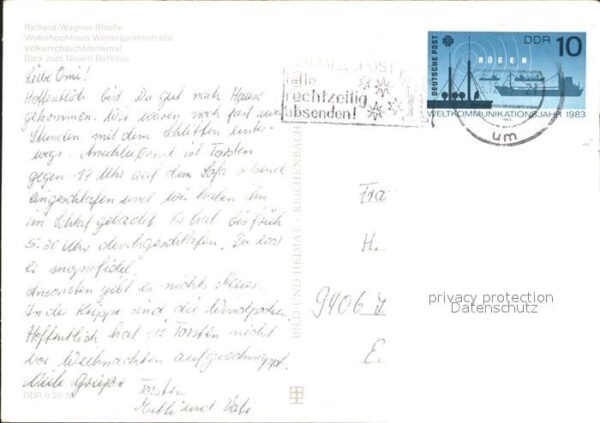 Richard-Wagner-Straße
Wohnhochhaus Wintergartenstraße
Völkerschlachtdenkmal
Blick zum Neuen Rathaus
Liebe Omi!
Hoffentlich bist Du gut nach Hause
gekommen. Wir waren noch fast zwei
Stunden mit dem Schlitten unter-
wegs. Anschließend ist Torsten
gegen 17 Uhr auf dem Sofa
eingeschlafen und wir haben ihn
im Schlaf gebadet. Er hat bis früh
5.30 Uhr durchgeschlafen. Da war
er mopsfidel.
Ansonsten gibt es nichts Neues.
In der Krippe sind die Windpocken.
Hoffentlich hat Torsten nicht
vor Weihnachten aufgeschnappt.
Viele Grüße
Torsten
Mutti und Vati
DDR 0,20 M
BILD UND HEIMAT · REICHENBACH
rechtzeitig
absenden!
DEUTSCHE POST
DDR 10
RÜGEN
WELTKOMMUNIKATIONSJAHR 1983
um
Fra
H.
9406
E.
privacy protection
Datenschutz